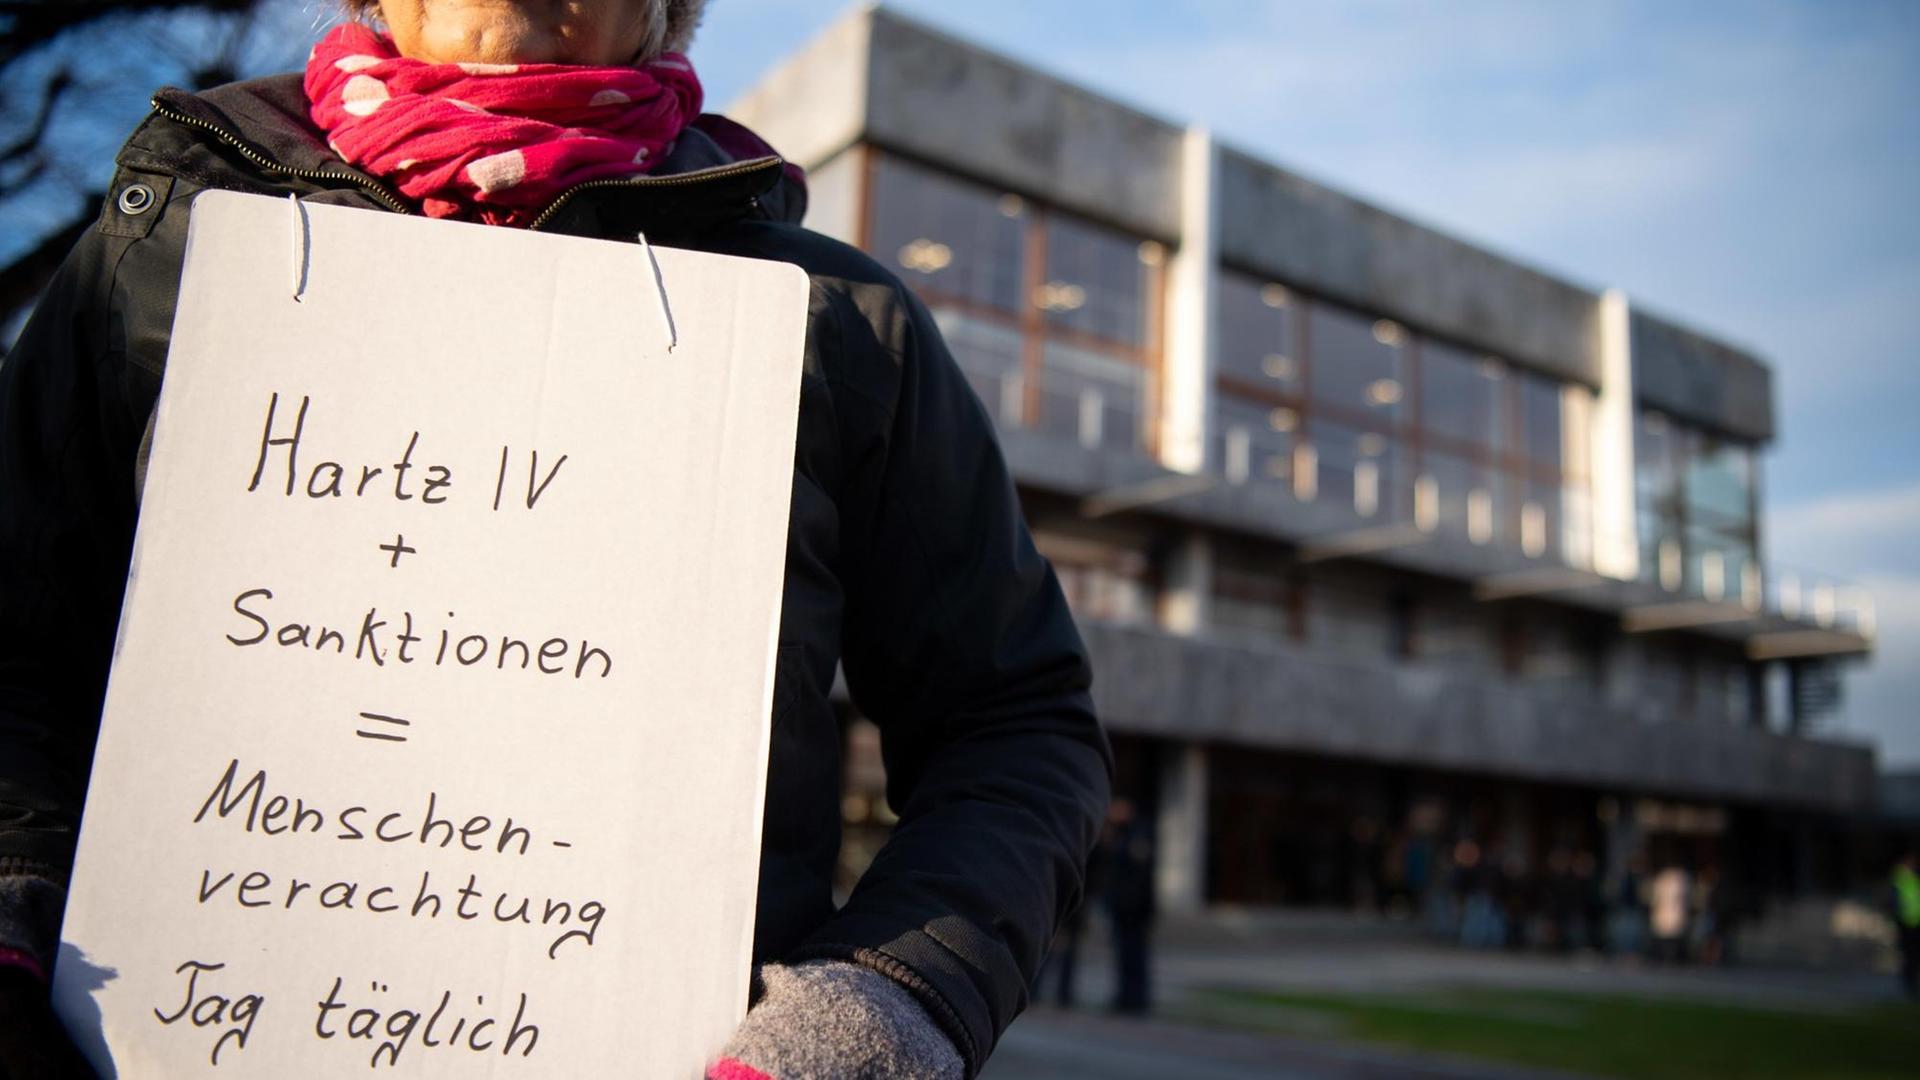 Hartz IV
+
Sanktionen
=
Menschen-
verachtung
Tag täglich